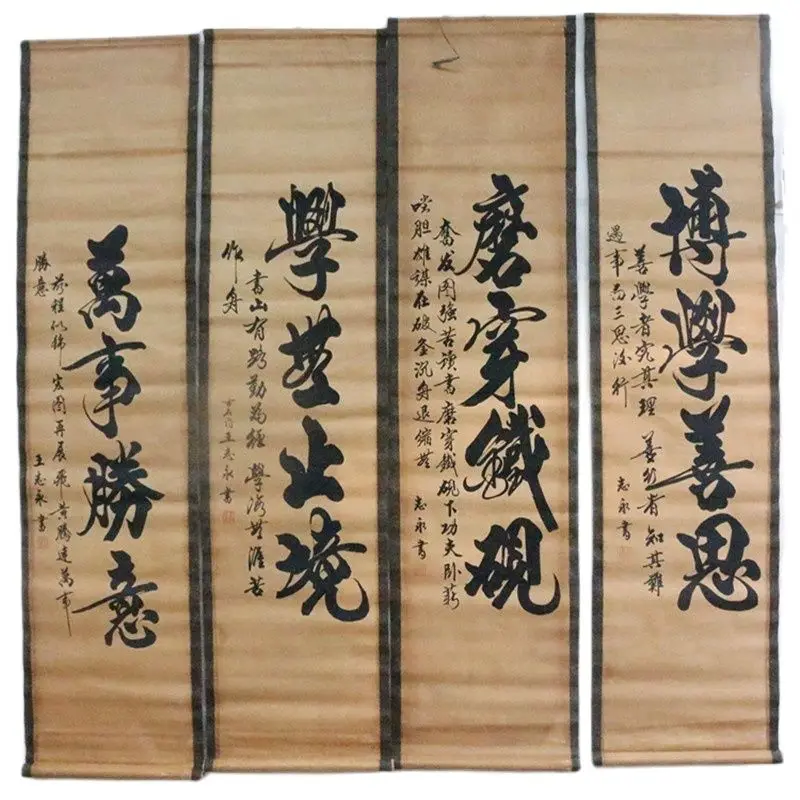 博學善思
善學者究其理 善行者知其難
遇事為三思後行
志永書
磨穿鐵硯
奮发图強苦读書磨穿鉄硯下功夫卧薪
嘗胆雄謀在破釜沉舟退缩無
志永書
學無止境
書山有路勤為徑 學海無涯苦
作舟
王志永書
萬事勝意
前程似锦 宏图再展 飛黄腾達 萬事
勝意
王志永書